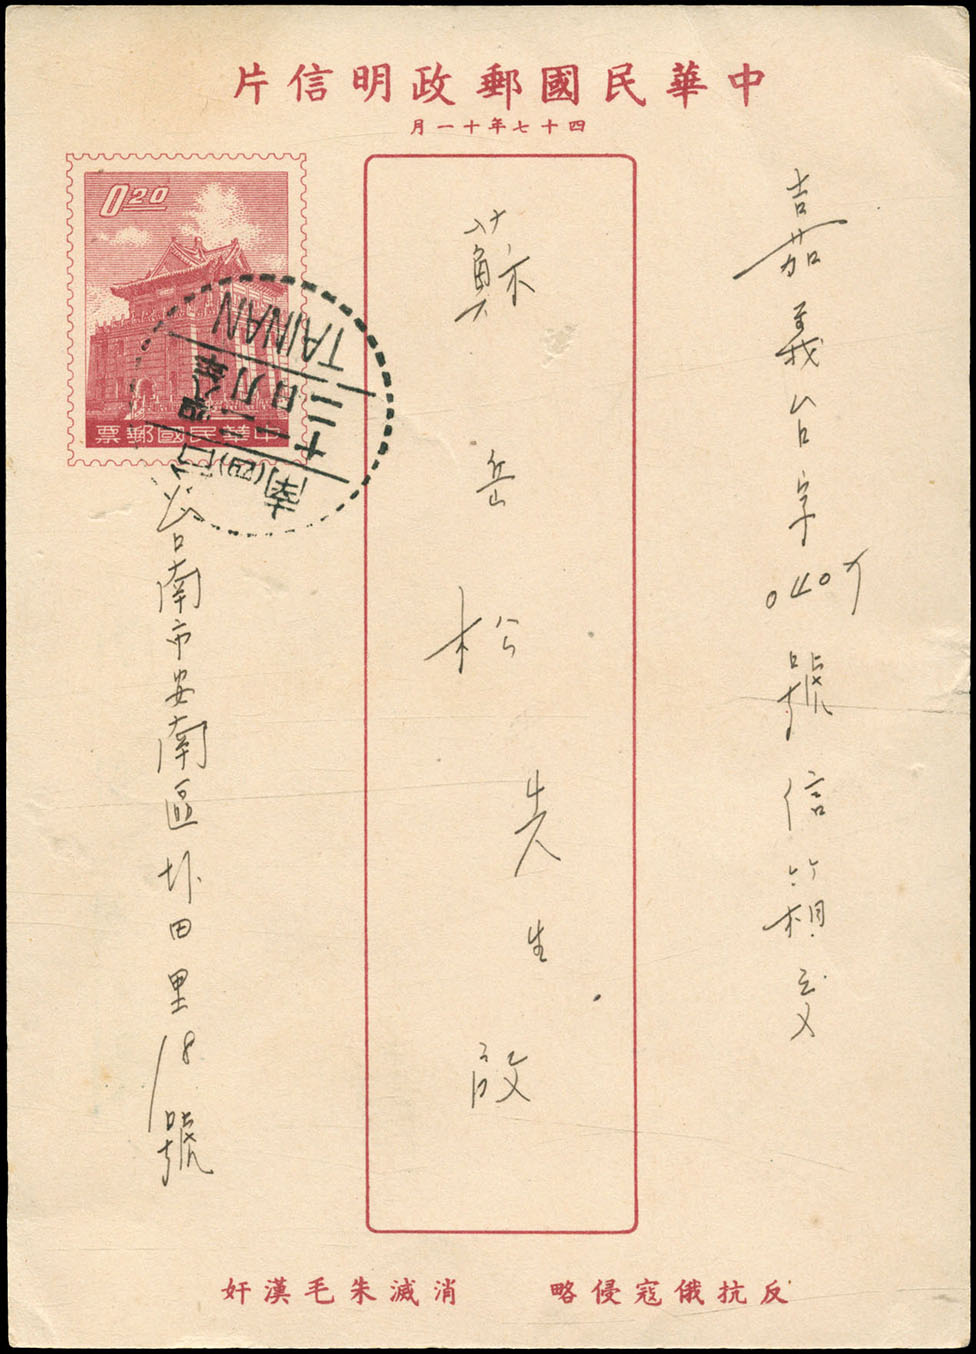 中華民國郵政明信片
四十七年十一月
0.20
中華民國郵票
TAINAN
台南(四)
嘉義台字號信箱交
蘇岳松先生 啟
台南市安南區田里18號
反抗俄寇侵略 消滅朱毛漢奸